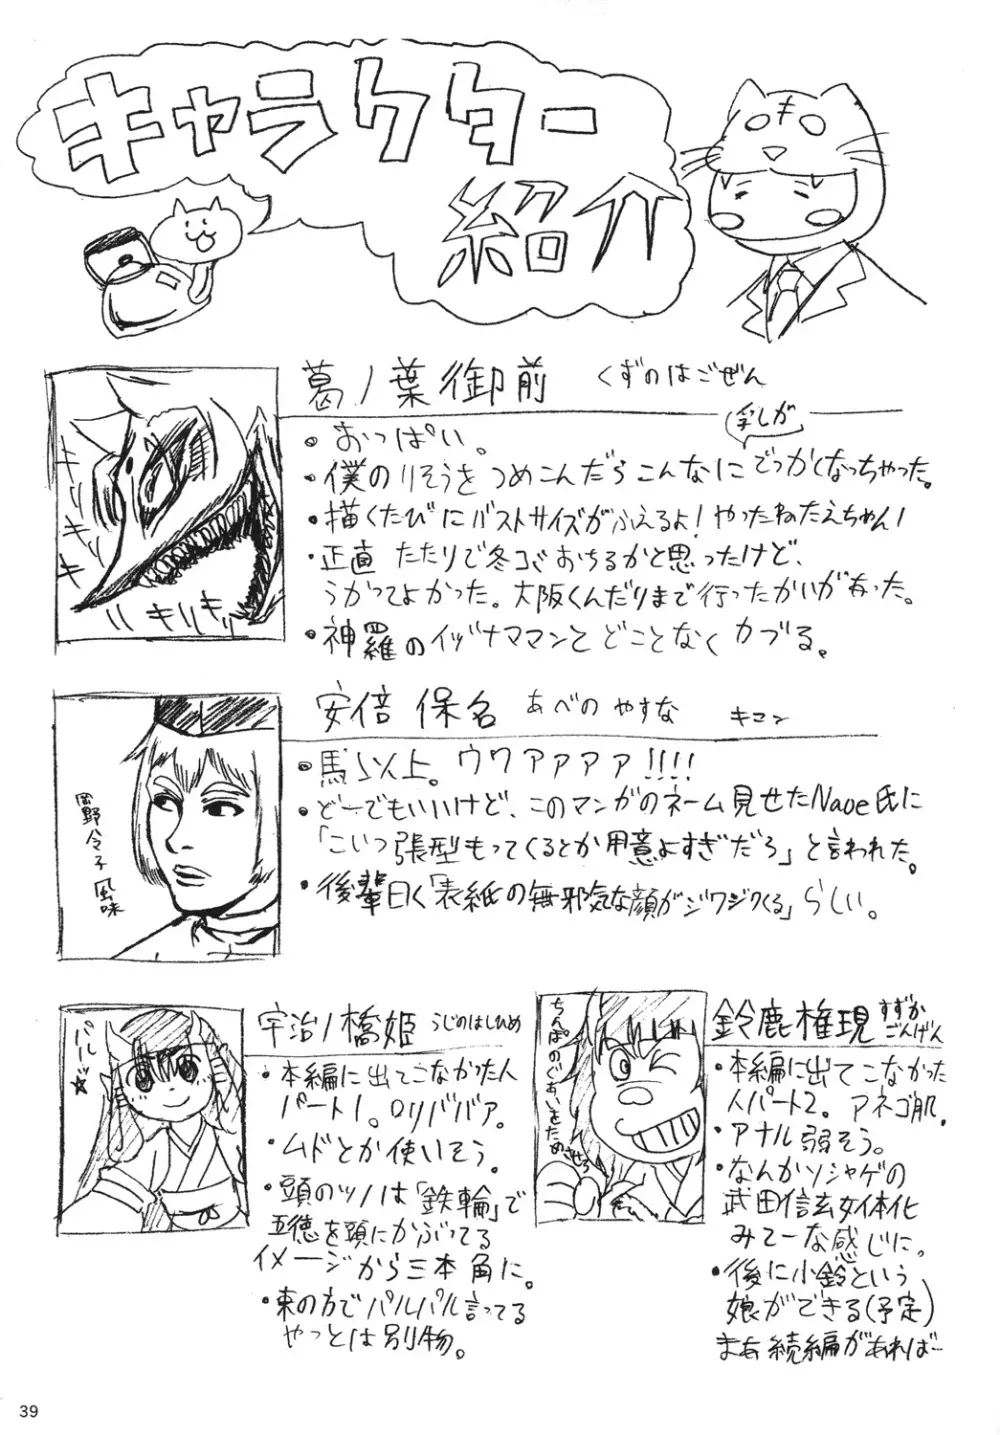 キャラクター
紹介
葛ノ葉御前 くずのはごぜん
・おっぱい。
乳しが
・僕のりそうをつめこんだらこんなにでっかくなっちゃった。
・描くたびにバストサイズがふえるよ!やったねたえちゃん!
・正直 たたりで冬コミおちるかと思ったけど、
うかってよかった。大阪くんだりまで行ったかいがあった。
・神羅のイヅナママンとどことなくカブる。
キリキリキリ
安倍 保名 あべの やすな キコン
・馬並以上。ウワァァァァ!!!!
・どーでもいいけど、このマンガのネーム見せたNaoe氏に
「こいつ張型もってくるとか用意よすぎだろ」と言われた。
・後輩曰く「表紙の無邪気な顔がジワジワくる」らしい。
岡野令子風味
宇治ノ橋姫 うじのはしひめ
・本編に出てこなかった人
パート1。ロリババア。
・ムドとか使いそう。
・頭のツノは「鉄輪」で
五徳を頭にかぶってる
イメージから三本角に。
・東の方でパルパル言ってる
やつとは別物。
パルッ☆
鈴鹿権現 すずかごんげん
・本編に出てこなかった
人パート2。アネゴ肌。
・アナル弱そう。
・なんかソシャゲの
武田信玄女体化
みてーな感じに。
・後に小鈴という
娘ができる(予定)
まあ続編があれば…
39